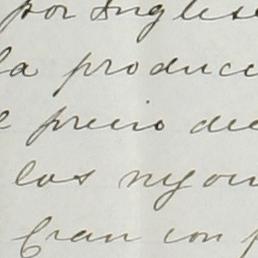 por Ingles
la produc
precio de
los nyon
Gran con p